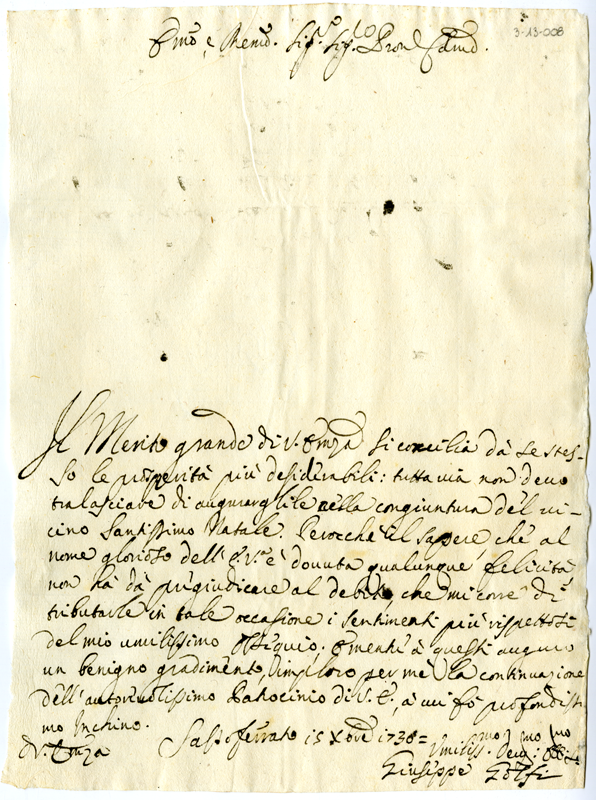 3-13-008
Emo, e Remo. Sigr. Sigr. Pron. Colmo.
Il Merito grande di V. Emza si concilia dà se stes-
so le prosperità più desiderabili: tuttavia non devo
tralasciare di augurargliele nella congiuntura del vi-
cino Santissimo Natale. Perocchè il sapere, che al
nome glorioso dell' E. Va. è dovuta qualunque felicità
non hà dà pregiudicare al debito, che mi corre di
tributarle in tale occasione i sentimenti più rispettosi
del mio umilissimo Ossequio. E mentre à questi auguro
un benigno gradimento, imploro per me la continuazione
dell' autorevolissimo Patrocinio di V. E., à cui fò profondissi-
mo Inchino.
Sassoferrato 15 Xbre 1738=
D. V. Emza
Umiliss.mo Dev.mo Obb.mo
Giuseppe